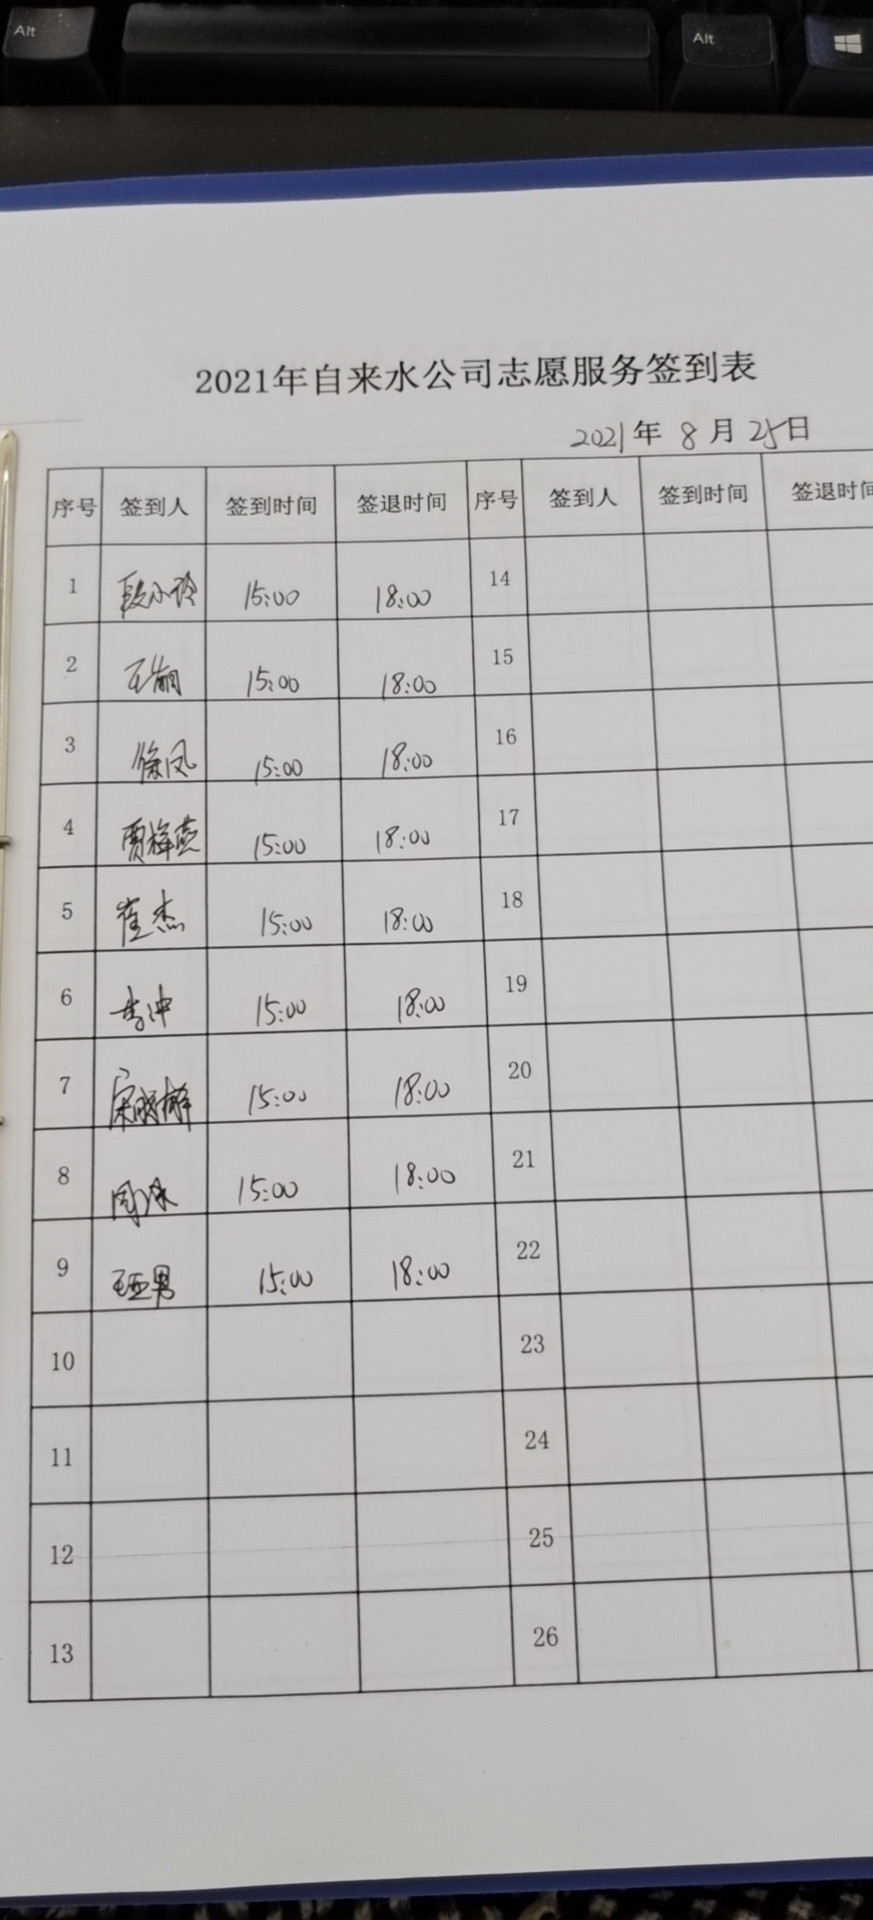 Alt Alt
2021年自来水公司志愿服务签到表
2021年 8月 25日
序号 签到人 签到时间 签退时间 序号 签到人 签到时间 签退时间
1 段小玲 15:00 18:00 14
2 15:00 18:00 15
3 徐凤 15:00 18:00 16
4 贾梅燕 15:00 18:00 17
5 崔杰 15:00 18:00 18
6 李冲 15:00 18:00 19
7 15:00 18:00 20
8 15:00 18:00 21
9 王亚男 15:00 18:00 22
10 23
11 24
12 25
13 26